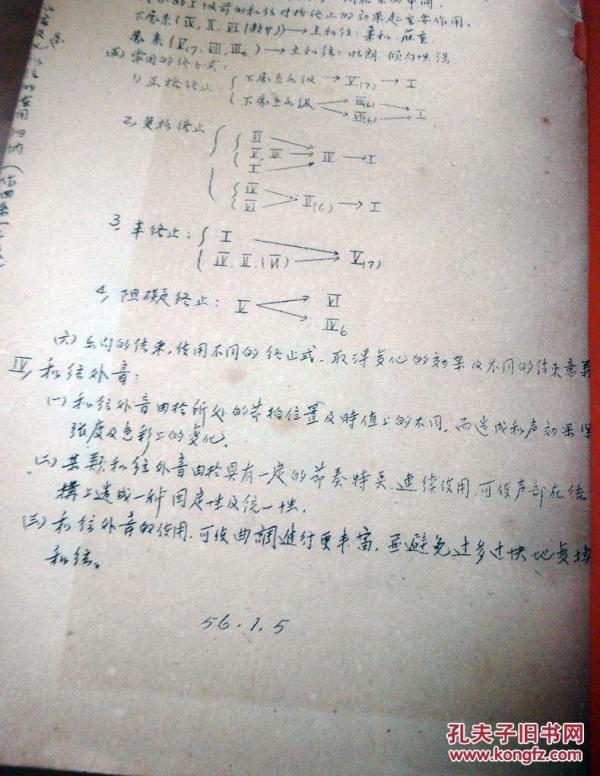 下属系(Ⅳ,Ⅱ,Ⅵ)→主和弦:柔和,庄重
属系(Ⅴ7,Ⅶ,Ⅲ6)→主和弦:
(五)常用的终止式:
1,正格终止 { 下属系各级→Ⅴ(7)→Ⅰ
下属系各级→Ⅲ(6) Ⅶ(6)→Ⅰ
2,变格终止 { Ⅱ
Ⅴ,Ⅲ →Ⅳ→Ⅰ
Ⅰ
{ Ⅳ
Ⅵ →Ⅱ(6)→Ⅰ
3,半终止:{ Ⅰ
Ⅳ,Ⅱ,(Ⅵ) →Ⅴ(7)
4,阻碍终止:Ⅴ→Ⅵ
Ⅳ6
(六)乐句的结束,使用不同的终止式,取得变化的効果及不同的结束意义
Ⅳ,和弦外音:
(一)和弦外音由於所处的节拍位置及時值上的不同,而造成和声効果
强度及色彩上的变化.
(二)某类和弦外音由於具有一定的节奏特点,連续使用,可使声部在结
構上造成一种固定性及统一性.
(三)和弦外音的使用,可使曲調進行更丰富,並避免过多过快地变换
和弦。
56.1.5
孔夫子旧书网
WWW.KONGFZ.COM